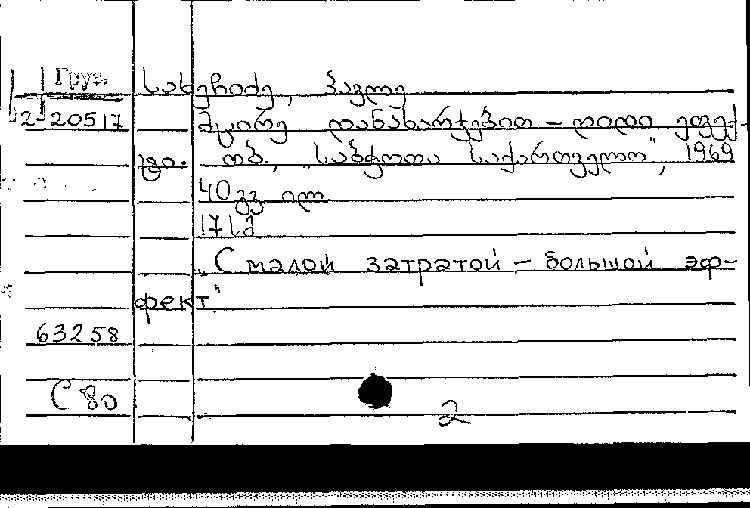 Груз.
სახეჩიძე, პავლე
2-20517
მცირე დანახარჯებით – დიდი ეფექ-
ტი. თბ., "საბჭოთა საქართველო", 1969
40 გვ ილ
17 სმ
"С малой затратой – большой эф-
фект"
63258
С 80
2